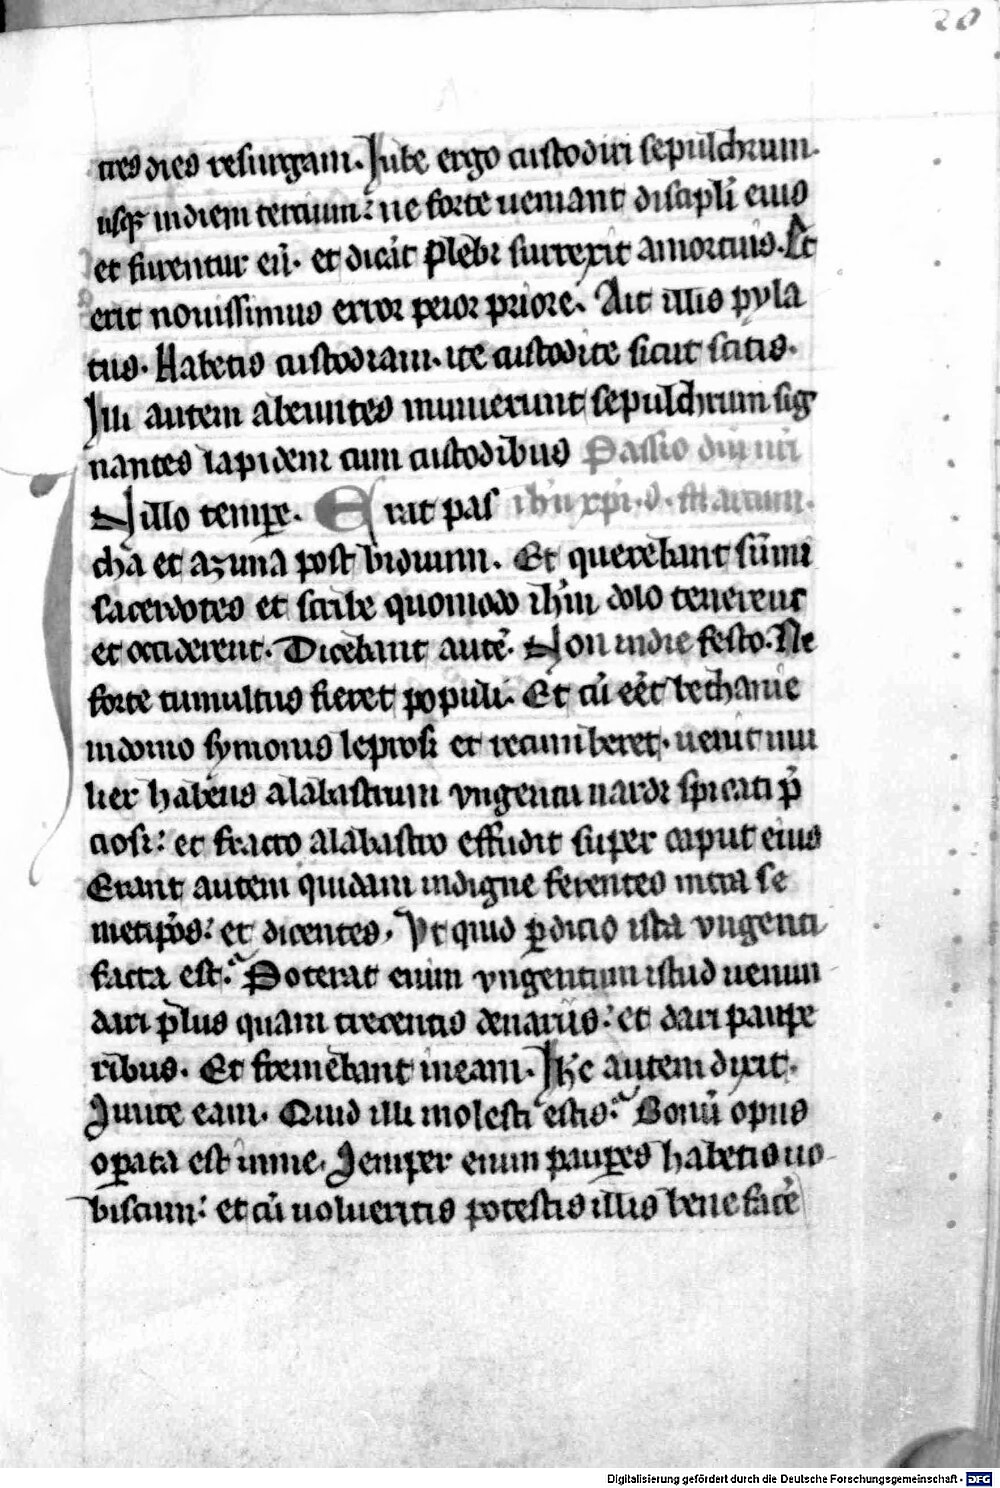 20
tres dies resurgam. Iube ergo custodiri sepulchrum.
usqꝫ in diem tercium: ne forte ueniant discipĺi eius
et furentur eū. et dicāt plebi surrexit a mortuis. Et
erit nouissimus error peior priore. Ait illis pyla
tus. Habetis custodiam. ite custodite sicut scitis.
Illi autem abeuntes munierunt sepulchrum sig
nantes lapidem cum custodibus Passio dn̄i nr̄i
In illo tempꝛe. Erat pas ih̄u xp̄i. s. Marcum.
cha et azima post biduum. Et querebant sūmi
sacerdotes et scribe quomodo ih̄m dolo tenerent
et occiderent. Dicebant autē. Non in die festo. Ne
forte tumultus fieret populi. Et cū eēt bethanie
in domo symonis leprosi et recumberet. uenit mu
lier habens alabastrum vngenti nardi spicati p̄
ciosi: et fracto alabastro effudit super caput eius
Erant autem quidam indigne ferentes intra se
metip̄os: et dicentes. Vt quid ꝑdicio ista vngenti
facta est. Poterat enim vngentum istud uenun
dari plus quam trecentis denariis: et dari paupe
ribus. Et fremebant in eam. Ihc autem dixit.
Sinite eam. Quid illi molesti estis. Bonū opus
oꝑata est in me. Semper enim pauꝑes habetis uo
biscum: et cū uolueritis potestis illis bene facē
Digitalisierung gefördert durch die Deutsche Forschungsgemeinschaft - DFG